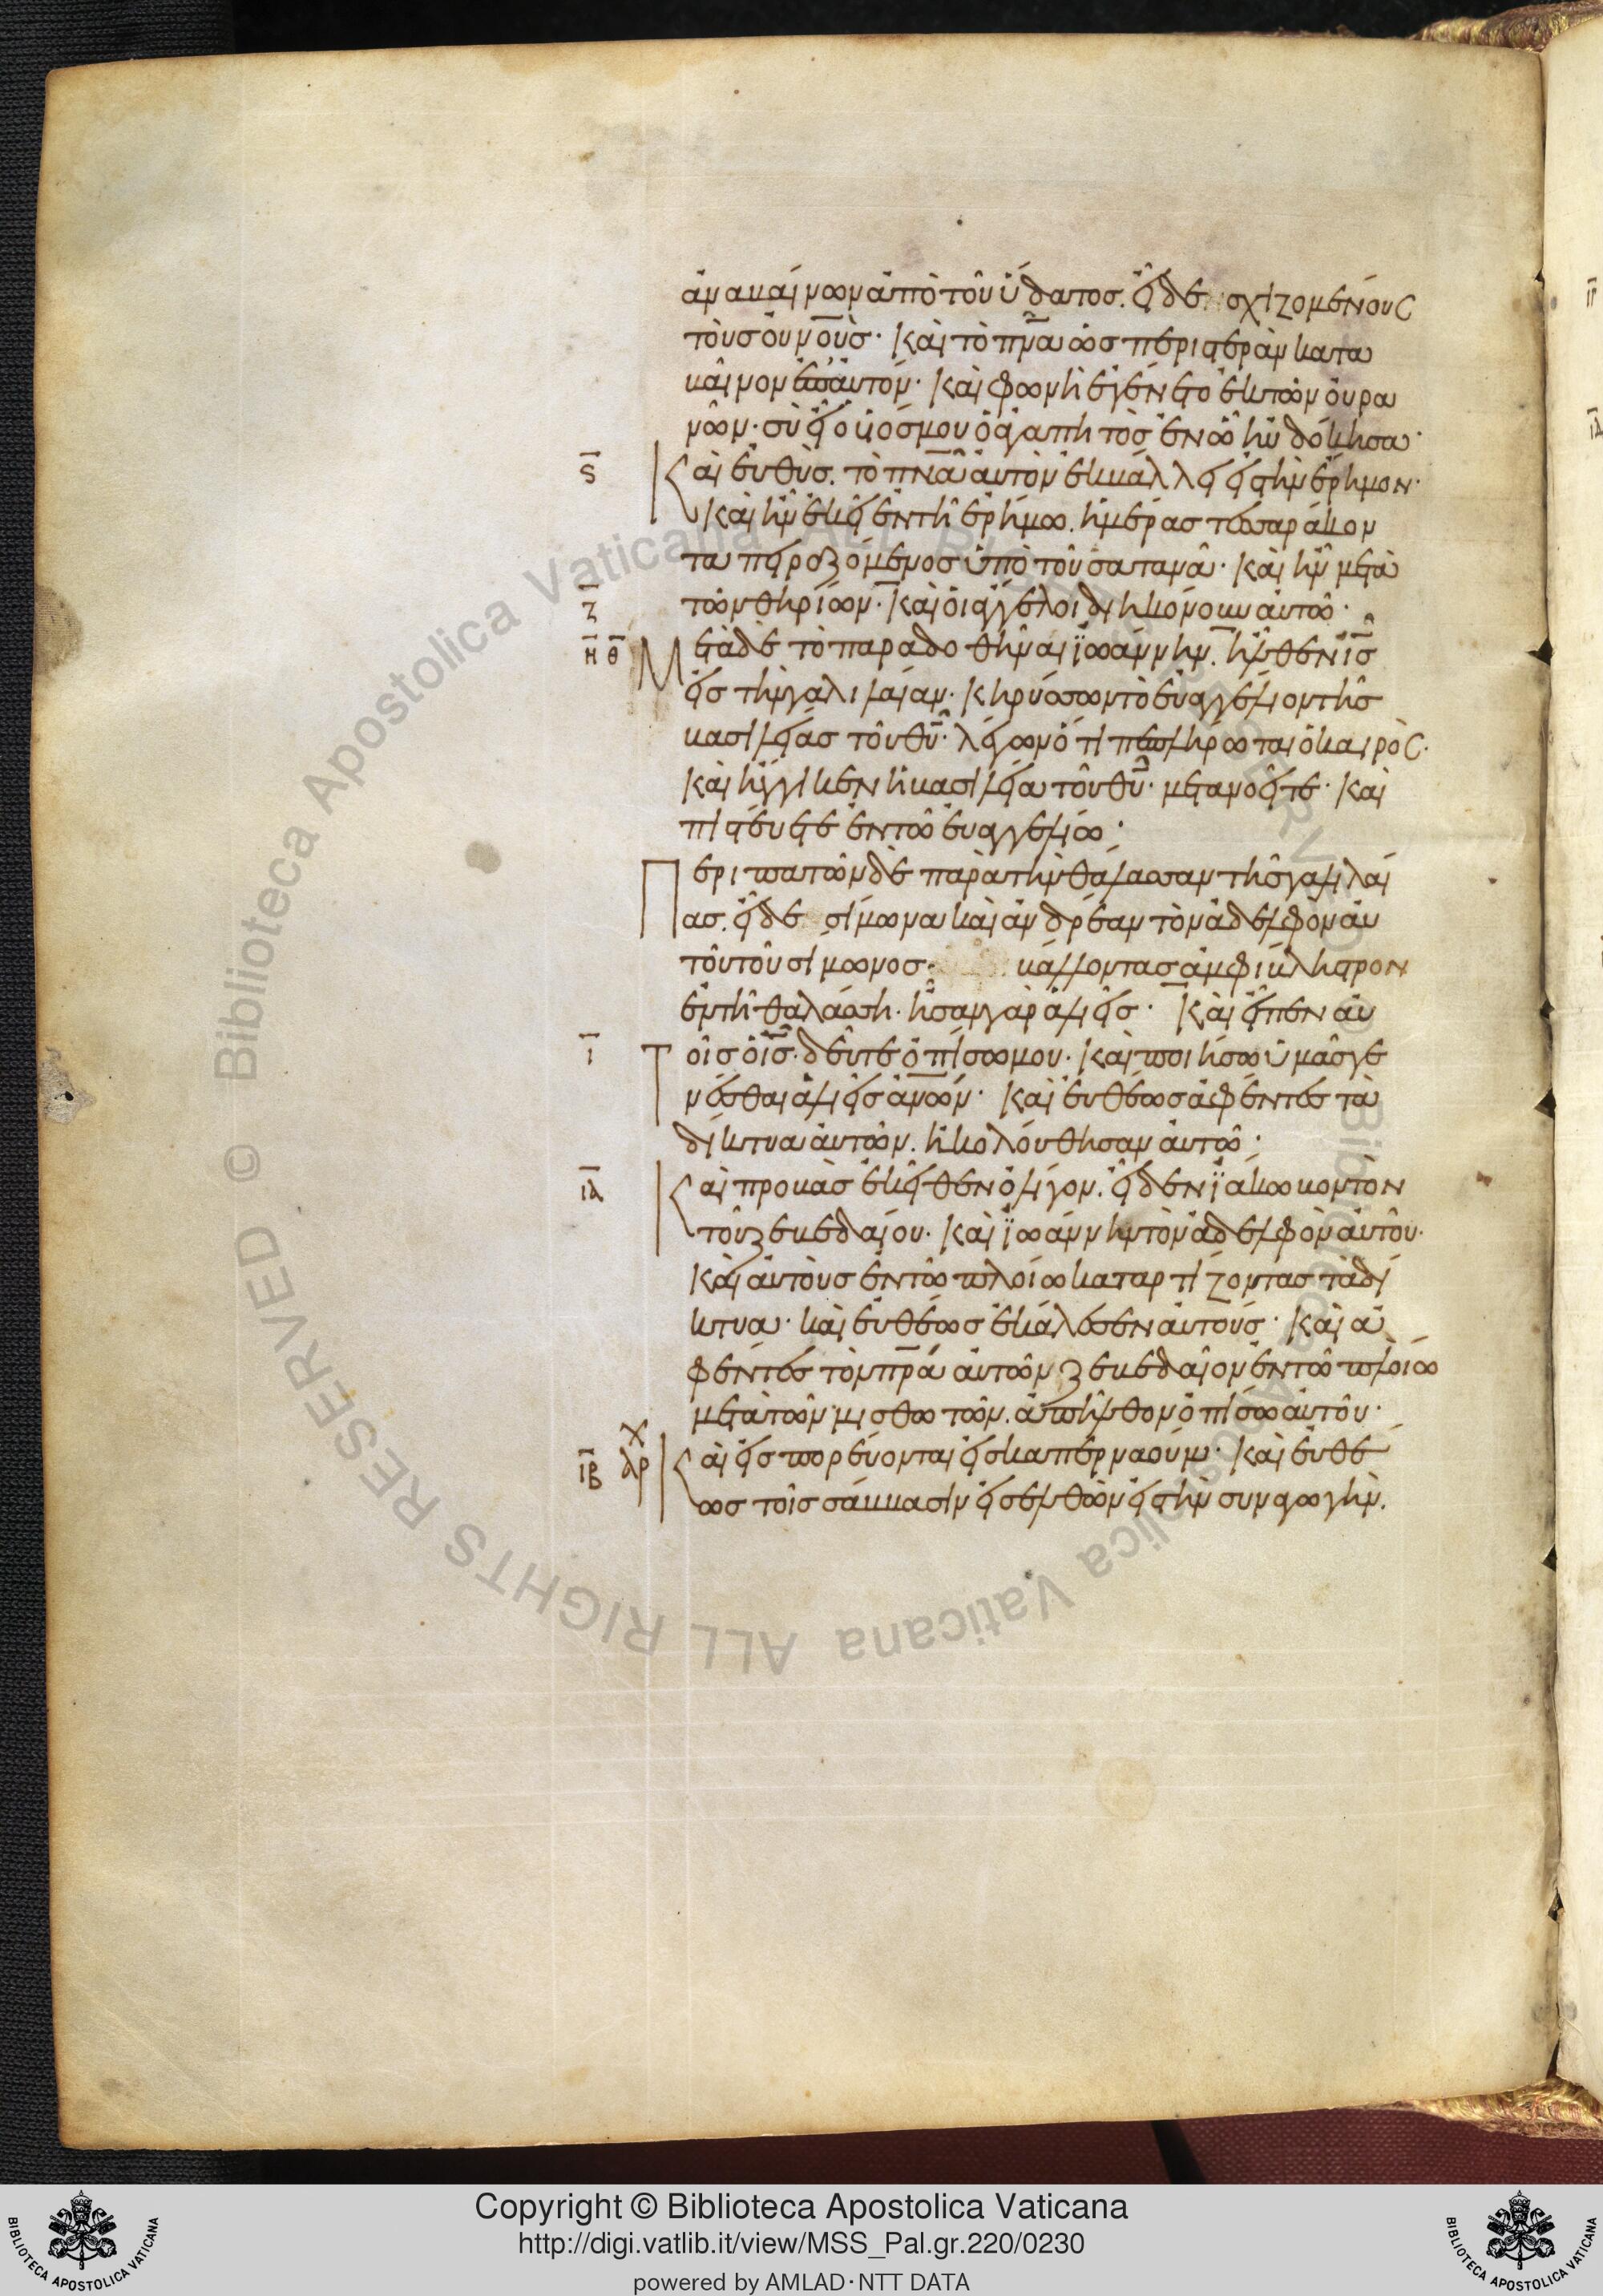 ἀναβαίνων ἀπὸ τοῦ ὕδατοσ. εἶδε σχιζομένουσ
τοὺσ οὐνοὺσ· καὶ τὸ πνα ὡσ περιστερὰν κατα
βαῖνον ἐπ' αὐτόν· καὶ φωνὴ ἐγένετο ἐκ τῶν οὐρα
νῶν· σὺ εἶ ὁ υἱόσ μου ὁ ἀγαπητὸσ ἐν ὧ ηὐδόκησα·
ς Καὶ εὐθὺσ. τὸ πνα αὐτὸν ἐκβάλλει εἰσ τὴν ἔρημον·
καὶ ἦν ἐκεῖ ἐν τῆ ἐρήμω. ἡμέρασ τεσσαράκον
τα πειραζόμενοσ ὑπὸ τοῦ σατανᾶ· καὶ ἦν μετὰ
ζ τῶν θηρίων· καὶ οἱ ἄγγελοι διηκόνουν αὐτῶ·
η θ Μετὰ δὲ τὸ παραδοθῆναι ϊωάννην. ἦλθεν ισ
εἰσ τὴν γαλιλαίαν· κηρύσσων τὸ εὐαγγέλιον τῆσ
βασιλείασ τοῦ θυ· λέγων ὅτι πεπλήρωται ὁ καιρὸσ·
καὶ ἤγγικεν ἡ βασιλεία τοῦ θυ· μετανοεῖτε· καὶ
πιστεύετε ἐν τῶ εὐαγγελίω·
Περιπατῶν δὲ παρὰ τὴν θάλασσαν τῆσ γαλιλαί
ασ. εἶδε σίμωνα καὶ ἀνδρέαν τὸν ἀδελφὸν αὐ
τοῦ τοῦ σίμωνοσ· βάλλοντασ ἀμφίβληστρον
ἐν τῆ θαλάσση· ἦσαν γὰρ ἁλιεῖσ· καὶ εἶπεν αὐ
ι Τοῖσ ὁ ισ· δεῦτε ὀπίσω μου· καὶ ποιήσω ὑμᾶσ γε
νέσθαι ἁλιεῖσ ἀνων· καὶ εὐθέωσ ἀφέντεσ τὰ
δίκτυα αὐτῶν. ἠκολούθησαν αὐτῶ·
ια Καὶ προβὰσ ἐκεῖθεν ὀλίγον. εἶδεν ϊάκωβον τὸν
τοῦ ζεβεδαίου· καὶ ϊωάννην τὸν ἀδελφὸν αὐτοῦ·
καὶ αὐτοὺσ ἐν τῶ πλοίω καταρτίζοντασ τὰ δί
κτυα· καὶ εὐθέωσ ἐκάλεσεν αὐτούσ· καὶ ἀ
φέντεσ τὸν πρα αὐτῶν ζεβεδαῖον ἐν τῶ πλοίω
μετὰ τῶν μισθωτῶν. ἀπῆλθον ὀπίσω αὐτοῦ·
ιβ Καὶ εἰσπορεύονται εἰσ καπερναούμ· καὶ εὐθέ
ωσ τοῖσ σάββασιν εἰσελθὼν εἰσ τὴν συναγωγὴν.
Copyright © Biblioteca Apostolica Vaticana
http://digi.vatlib.it/view/MSS_Pal.gr.220/0230
powered by AMLAD·NTT DATA
BIBLIOTECA APOSTOLICA VATICANA
BIBLIOTECA APOSTOLICA VATICANA
© Biblioteca Apostolica Vaticana ALL RIGHTS RESERVED
© Biblioteca Apostolica Vaticana ALL RIGHTS RESERVED